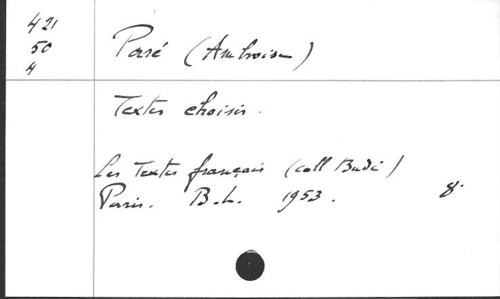 421
50
A
Paré (Ambroise)
Textes choisis.
Les Textes français (coll Budé)
Paris. B.L. 1953. 8°